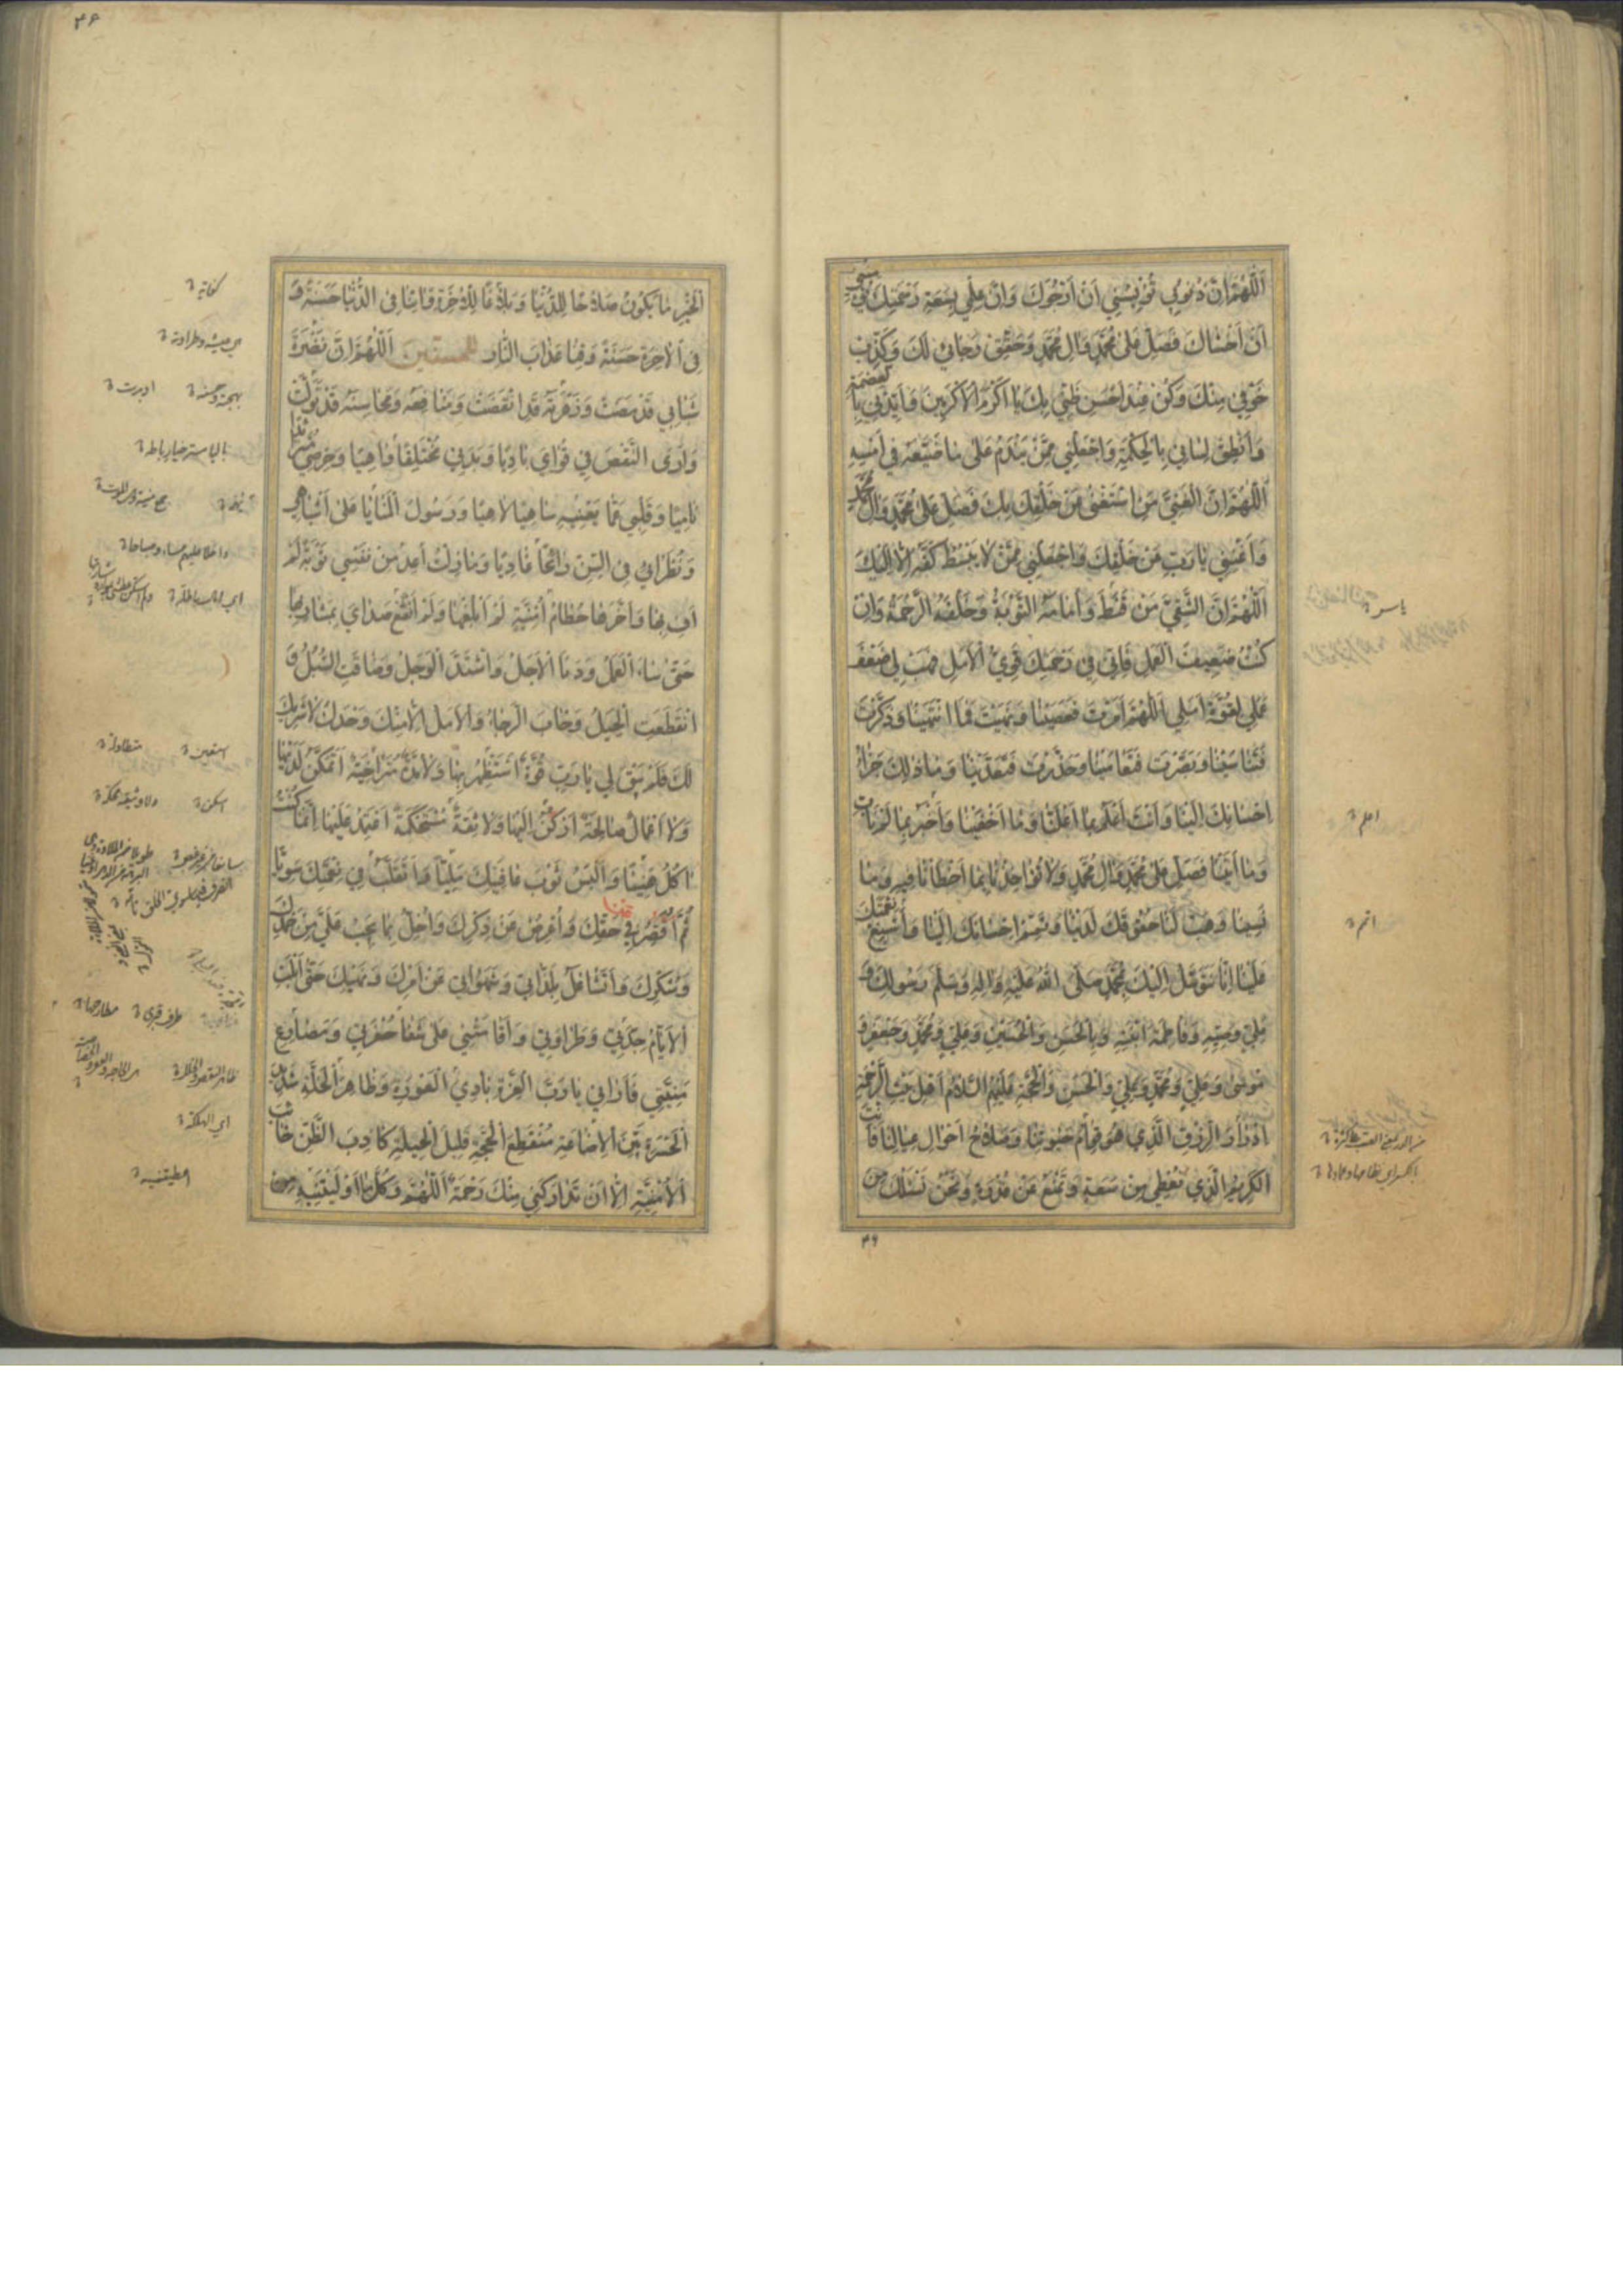 اَللّٰهُمَّ اِنَّ ذُنُوبِي تُؤْيِسُنِي اَنْ اَرْجُوَكَ وَاِنَّ عِلْمِي بِسَعَةِ رَحْمَتِكَ يُؤْمِنُنِي
اَنْ اَخْشَاكَ فَصَلِّ عَلٰى مُحَمَّدٍ وَاٰلِ مُحَمَّدٍ وَحَقِّقْ رَجَائِي لَكَ وَكَذِّبْ
خَوْفِي مِنْكَ وَكُنْ عِنْدَ اَحْسَنِ ظَنِّي بِكَ يَا اَكْرَمَ الْاَكْرَمِينَ وَاَيِّدْنِي بِالْعِصْمَةِ
وَاَنْطِقْ لِسَانِي بِالْحِكْمَةِ وَاجْعَلْنِي مِمَّنْ يَنْدَمُ عَلٰى مَا ضَيَّعَهُ فِي اَمْسِهِ
اَللّٰهُمَّ اِنَّ الْغَنِيَّ مَنِ اسْتَغْنٰى عَنْ خَلْقِكَ بِكَ فَصَلِّ عَلٰى مُحَمَّدٍ وَاٰلِ مُحَمَّدٍ
وَاَغْنِنِي يَا رَبِّ عَنْ خَلْقِكَ وَاجْعَلْنِي مِمَّنْ لَا يَبْسُطُ كَفَّهُ اِلَّا اِلَيْكَ
اَللّٰهُمَّ اِنَّ الشَّقِيَّ مَنْ قَنَطَ وَاَمَامَهُ التَّوْبَةُ وَخَلْفَهُ الرَّحْمَةُ وَاِنْ
كُنْتُ ضَعِيفَ الْعَمَلِ فَاِنِّي فِي رَحْمَتِكَ قَوِيُّ الْاَمَلِ فَهَبْ لِي ضَعْفَ
عَمَلِي لِقُوَّةِ اَمَلِي اَللّٰهُمَّ اَمَرْتَ فَعَصَيْنَا وَنَهَيْتَ فَمَا انْتَهَيْنَا وَذَكَّرْتَ
فَتَنَاسَيْنَا وَبَصَّرْتَ فَتَعَامَيْنَا وَحَذَّرْتَ فَتَعَدَّيْنَا وَمَا ذٰلِكَ جَزَاءُ
اِحْسَانِكَ اِلَيْنَا وَاَنْتَ اَعْلَمُ بِمَا اَعْلَنَّا وَمَا اَخْفَيْنَا وَاَخْبَرُ بِمَا لَمْ نَاْتِ
وَمَا اَتَيْنَا فَصَلِّ عَلٰى مُحَمَّدٍ وَاٰلِ مُحَمَّدٍ وَلَا تُؤَاخِذْنَا بِمَا اَخْطَأْنَا فِيهِ وَمَا
نَسِينَا وَهَبْ لَنَا حُقُوقَكَ لَدَيْنَا وَتَمِّمْ اِحْسَانَكَ اِلَيْنَا وَاَسْبِغْ نِعْمَتَكَ
عَلَيْنَا اِنَّا نَتَوَسَّلُ اِلَيْكَ بِمُحَمَّدٍ صَلَّى اللّٰهُ عَلَيْهِ وَاٰلِهِ وَسَلَّمَ رَسُولِكَ وَ
عَلِيٍّ وَصِيِّهِ وَفَاطِمَةَ ابْنَتِهِ وَبِالْحَسَنِ وَالْحُسَيْنِ وَعَلِيٍّ وَمُحَمَّدٍ وَجَعْفَرٍ وَ
مُوسٰى وَعَلِيٍّ وَمُحَمَّدٍ وَعَلِيٍّ وَالْحَسَنِ وَالْحُجَّةِ عَلَيْهِمُ السَّلَامُ اَهْلِ بَيْتِ الرَّحْمَةِ
اِدْرَارَ الرِّزْقِ الَّذِي هُوَ قِوَامُ حَيٰوتِنَا وَصَلَاحُ اَحْوَالِ عِيَالِنَا فَاَنْتَ
الْكَرِيمُ الَّذِي تُعْطِي مِنْ سَعَةٍ وَتَمْنَعُ عَنْ قُدْرَةٍ وَنَحْنُ نَسْئَلُكَ مِنَ
اعلم
اتم
٤٦
الْخَيْرِ مَا يَكُونُ صَلَاحًا لِلدُّنْيَا وَبَلَاغًا لِلْاٰخِرَةِ وَاٰتِنَا فِي الدُّنْيَا حَسَنَةً وَ
فِي الْاٰخِرَةِ حَسَنَةً وَقِنَا عَذَابَ النَّارِ اَللّٰهُمَّ اِنَّ نَضْرَةَ
شَبَابِي قَدْ مَضَتْ وَزَهْرَتَهُ قَدِ انْقَضَتْ وَمَنَافِعَهُ وَمَحَاسِنَهُ قَدْ تَوَلَّتْ
وَاَرَى النَّقْصَ فِي قُوَايَ بَادِيًا وَبَدَنِي مُخْتَلِقًا وَاهِيًا وَحِرْصِي مُتَزَايِدًا
نَامِيًا وَقَلْبِي عَمَّا يَعْنِيهِ سَاهِيًا لَاهِيًا وَرَسُولَ الْمَنَايَا عَلٰى اَشْبَاهِي
وَنُظَرَائِي فِي السِّنِّ رَائِحًا غَادِيًا وَمَا زِلْتُ اَعِدُ مِنْ نَفْسِي تَوْبَةً لَمْ
اَفِ بِهَا وَاَخَّرَهَا حُطَامُ اُمْنِيَّةٍ لَمْ اَبْلُغْهَا وَلَمْ اَنْقَعْ صَدَايَ بِمَشَارِبِهَا
حَتّٰى سَاءَ الْعَمَلُ وَدَنَا الْاَجَلُ وَاشْتَدَّ الْوَجَلُ وَضَاقَتِ السُّبُلُ وَ
انْقَطَعَتِ الْحِيَلُ وَخَابَ الرَّجَاءُ وَالْاَمَلُ اِلَّا مِنْكَ وَحْدَكَ لَا شَرِيكَ
لَكَ فَلَمْ يَبْقَ لِي يَا رَبِّ قُوَّةٌ اَسْتَظْهِرُ بِهَا وَلَا مُدَّةٌ مُتَرَاخِيَةٌ اَتَمَكَّنُ لَدَيْهَا
وَلَا اَعْمَالٌ صَالِحَةٌ اَرْكَنُ اِلَيْهَا وَلَا ثِقَةٌ مُسْتَحْكَمَةٌ اَعْتَمِدُ عَلَيْهَا اِنَّمَا كُنْتُ
اٰكُلُ هَنِيئًا وَاَلْبَسُ ثَوْبَ عَافِيَتِكَ مَلِيًّا وَاَتَقَلَّبُ فِي نِعْمَتِكَ سَوِيًّا
ثُمَّ اُقَصِّرُ فِي حَقِّكَ وَاُعْرِضُ عَنْ ذِكْرِكَ وَاُخِلُّ بِمَا يَجِبُ عَلَيَّ مِنْ حَمْدِكَ
وَشُكْرِكَ وَاَتَشَاغَلُ بِلَذَّاتِي وَشَهَوَاتِي عَنْ اَمْرِكَ وَنَهْيِكَ حَتّٰى اَبْلَتِ
الْاَيَّامُ جِدَّتِي وَطَرَاوَتِي وَاَقَامَتْنِي عَلٰى شَفَا حُفْرَتِي وَمَصَارِعِ
مَنِيَّتِي فَاَرَانِي يَا رَبَّ الْعِزَّةِ بَادِيَ الْعَوْرَةِ وَظَاهِرَ الْخَلَّةِ شَدِيدَ
الْحَسْرَةِ بَيِّنَ الْاِضَاعَةِ مُنْقَطِعَ الْحُجَّةِ قَلِيلَ الْحِيلَةِ كَاذِبَ الظَّنِّ خَائِبَ
الْاُمْنِيَّةِ اِلَّا اَنْ تَدَارَكَنِي مِنْكَ رَحْمَةٌ اَللّٰهُمَّ وَكُلَّمَا اَوْلَيْتَنِيهِ مِنْ
ادبرت
استعين
متطاولة
اي الهلكة
اعطيتنيه